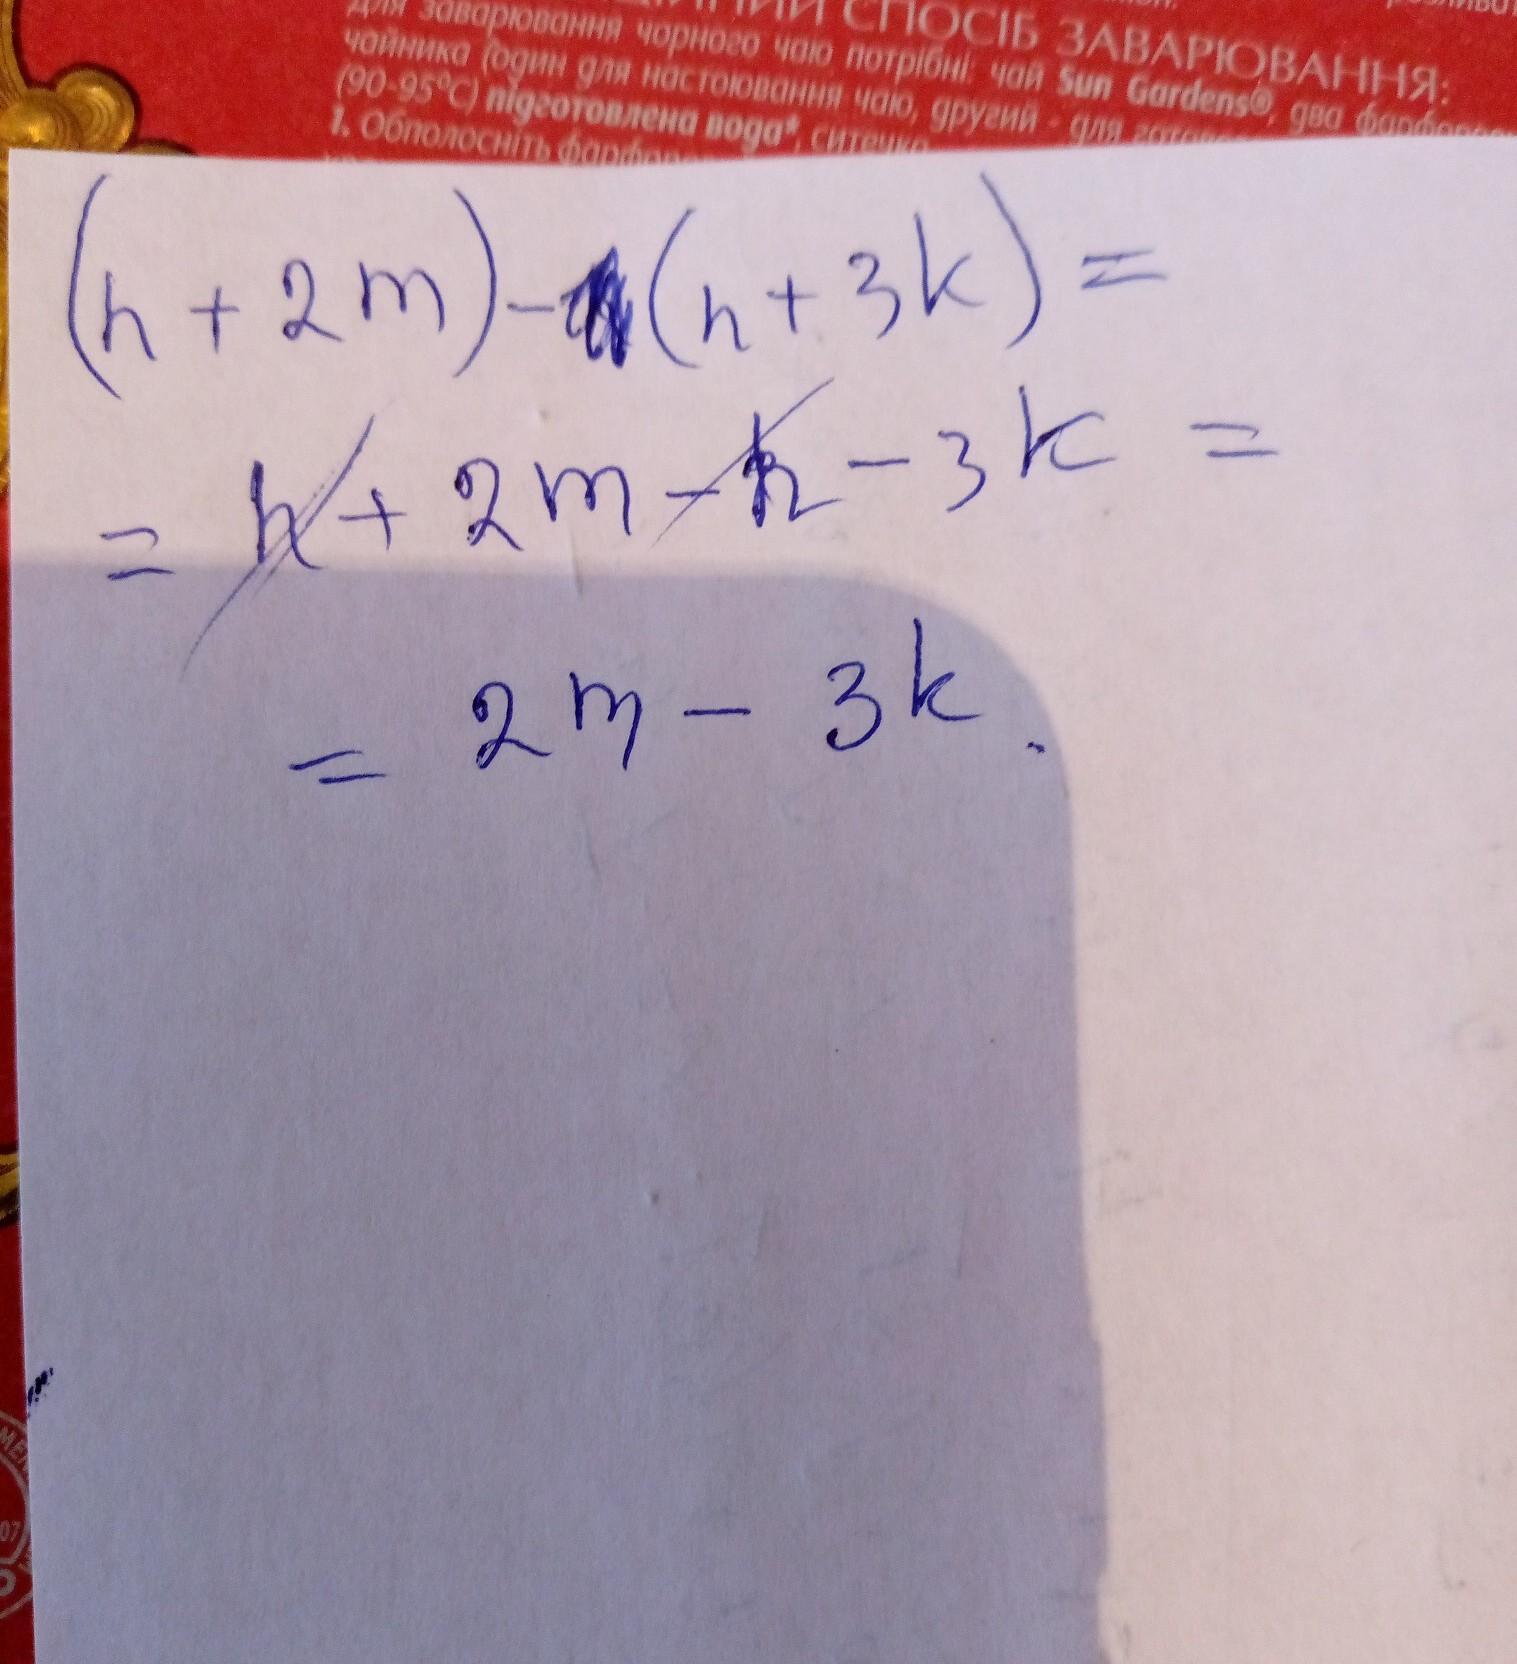 СПОСІБ ЗАВАРЮВАННЯ:
для заварювання чорного чаю потрібні: чай Sun Gardens®, два
чайника (один для настоювання чаю, другий - для
(90-95°C) підготовлена вода*, ситечко
1. Обполосніть
(n + 2m) - (n + 3k) =
= n + 2m - n - 3k =
= 2m - 3k.
07